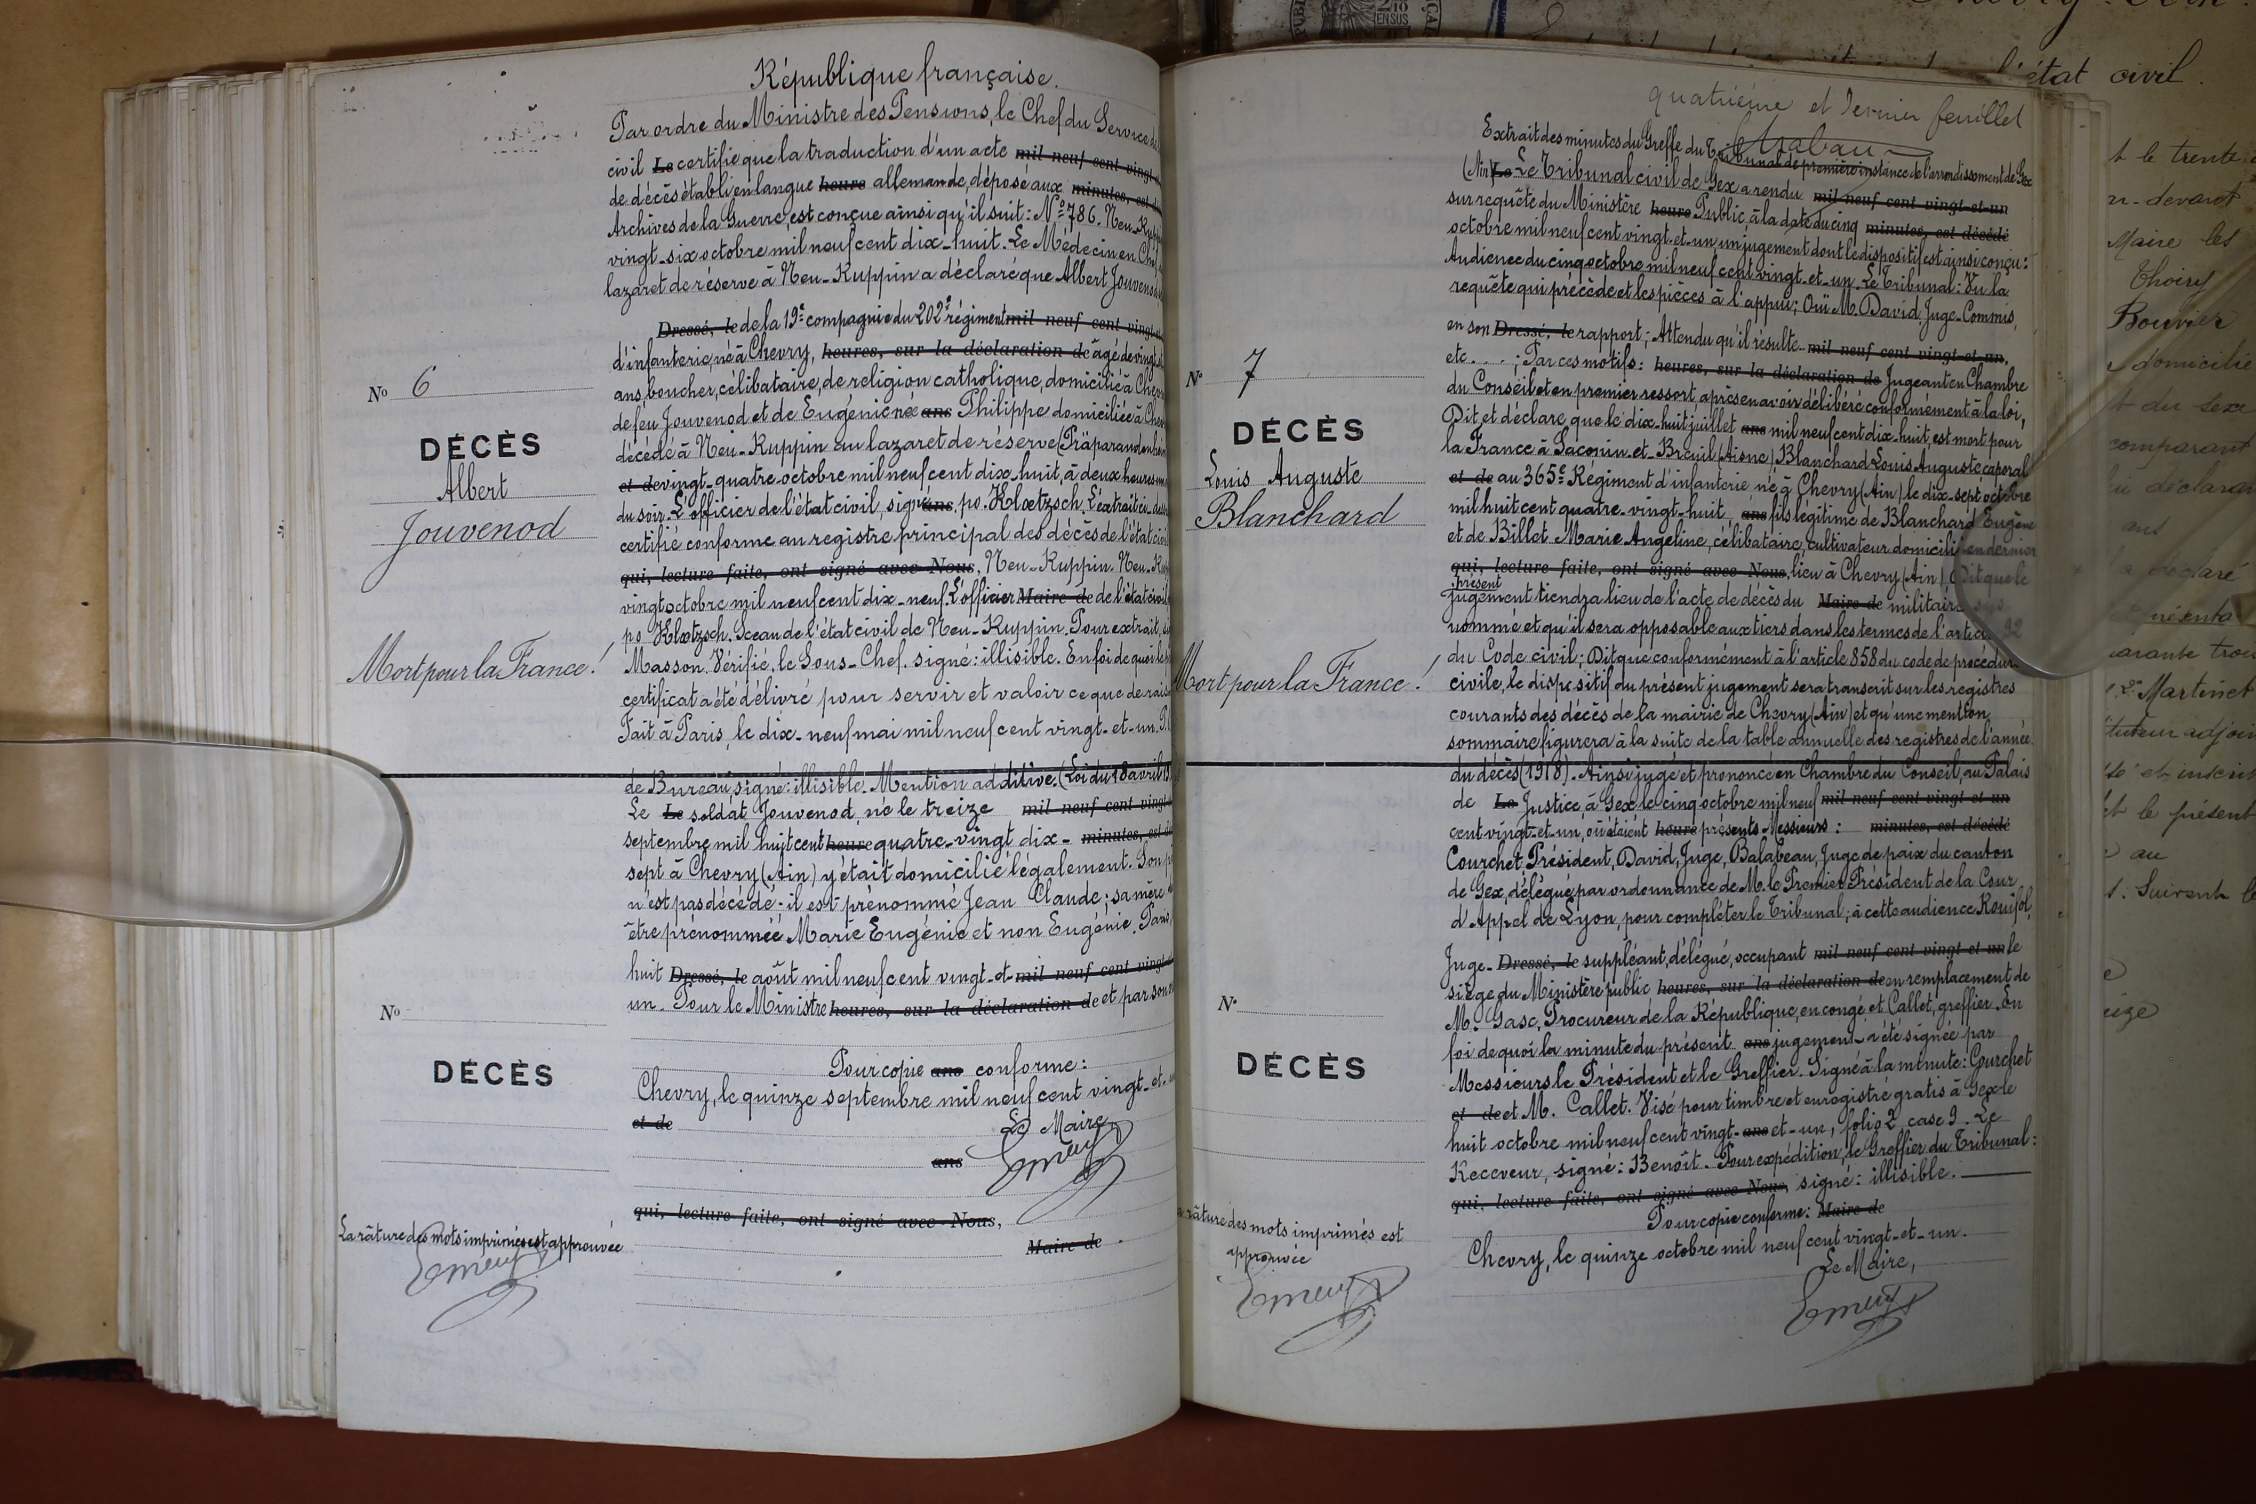 République française.
Par ordre du Ministre des Pensions, le Chef du Service de
civil Le certifie que la traduction d'un acte mil neuf cent vingt
de décès établi en langue heure allemande, déposé aux minutes, est
Archives de la Guerre, est conçue ainsi qu'il suit: N° 786. Neu-Rupp
vingt-six octobre mil neuf cent dix-huit. Le Médecin en Chef
lazaret de réserve à Neu-Ruppin a déclaré que Albert Jouvenod
Dressé, le de la 19e compagnie du 202e régiment mil neuf cent vingt
d'infanterie, né à Chevry, heures, sur la déclaration de âgé de vingt
ans, boucher, célibataire, de religion catholique, domicilié à Chev
de feu Jouvenod et de Eugénie née ans Philippe domiciliée à Chev
décédé à Neu-Ruppin au lazaret de réserve (Präparanden
et de vingt-quatre octobre mil neuf cent dix-huit, à deux heures
du soir. L'officier de l'état civil, signé: ans po. Klœtzsch. L'extrait ci-dess
certifié conforme au registre principal des décès de l'état civil
qui, lecture faite, ont signé avec Nous, Neu-Ruppin. Neu-Ru
vingt octobre mil neuf cent dix-neuf. L'officier Maire de de l'état civil
po Klœtzsch. Sceau de l'état civil de Neu-Ruppin. Pour extrait, si
Masson. Vérifié, le Sous-Chef. signé: illisible. En foi de quoi le
certificat a été délivré pour servir et valoir ce que de rais
Fait à Paris, le dix-neuf mai mil neuf cent vingt-et-un.
de Bureau, signé: illisible. Mention additive. (Loi du 18 avril
Le Le soldat Jouvenod, né le treize mil neuf cent vingt
septembre mil huit cent heure quatre-vingt dix- minutes, est
sept à Chevry (Ain) y était domicilié légalement. Son p
n'est pas décédé - il est prénommé Jean Claude; sa mère
être prénommée Marie Eugénie et non Eugénie. Paris,
huit Dressé, le août mil neuf cent vingt-et- mil neuf cent vingt
un. Pour le Ministre heures, sur la déclaration de et par son
Pour copie ans conforme:
Chevry, le quinze septembre mil neuf cent vingt-et-
et de Le Maire,
ans
qui, lecture faite, ont signé avec Nous,
Maire de
No 6
DÉCÈS
Albert
Jouvenod
Mort pour la France!
No
DÉCÈS
La râture des mots imprimés est approuvée
quatrième et dernier feuillet
Extrait des minutes du Greffe du Tribunal de première instance de l'arrondissement de Gex
(Ain) Le Le Tribunal civil de Gex a rendu mil neuf cent vingt-et-un
sur requête du Ministère heure Public, à la date du cinq minutes, est décédé
octobre mil neuf cent vingt-et-un un jugement dont le dispositif est ainsi conçu:
Audience du cinq octobre mil neuf cent vingt-et-un. Le Tribunal: Vu la
requête qui précède et les pièces à l'appui; Ouï M. David Juge-Commis,
en son Dressé, le rapport; Attendu qu'il résulte mil neuf cent vingt et un,
etc....; Par ces motifs: heures, sur la déclaration de Jugeant en Chambre
du Conseil et en premier ressort après en avoir délibéré conformément à la loi,
Dit et déclare que le dix-huit juillet ans mil neuf cent dix-huit, est mort pour
la France à Saconin-et-Breuil (Aisne), Blanchard Louis Auguste, caporal
et de au 365e Régiment d'infanterie né à Chevry (Ain) le dix-sept octobre
mil huit cent quatre-vingt-huit, ans fils légitime de Blanchard Eugène
et de Billet Marie Angeline, célibataire, cultivateur domicilié en dernier
qui, lecture faite, ont signé avec Nous, lieu à Chevry (Ain). Dit que le
présent
jugement tiendra lieu de l'acte de décès du Maire de militaire sus
nommé et qu'il sera opposable aux tiers dans les termes de l'article 92
du Code civil; Dit que conformément à l'article 858 du code de procédure
civile, le dispositif du présent jugement sera transcrit sur les registres
courants des décès de la mairie de Chevry (Ain) et qu'une mention
sommaire figurera à la suite de la table annuelle des registres de l'année
du décès (1918). Ainsi jugé et prononcé en Chambre du Conseil, au Palais
de Le Justice, à Gex le cinq octobre mil neuf mil neuf cent vingt et un
cent vingt-et-un, où étaient heure présents Messieurs: minutes, est décédé
Courchet, Président, David, Juge, Balabeau, Juge de paix du canton
de Gex, délégué par ordonnance de M. le Premier Président de la Cour
d'Appel de Lyon, pour compléter le Tribunal; à cette audience Rouijol,
Juge- Dressé, le suppléant, délégué, occupant mil neuf cent vingt et un le
siège du Ministère public heures, sur la déclaration de en remplacement de
M. Gasc, Procureur de la République, en congé et Callet, greffier. En
foi de quoi la minute du présent ans jugement a été signée par
Messieurs le Président et le Greffier. Signé à la minute: Courchet
et de et M. Callet. Visé pour timbre et enregistré gratis à Gex le
huit octobre mil neuf cent vingt- ans et-un, folio 2, case 9. Le
Receveur, signé: Benoît. Pour expédition, le Greffier du Tribunal:
qui, lecture faite, ont signé avec Nous, signé: illisible.
Pour copie conforme: Maire de
Chevry, le quinze octobre mil neuf cent vingt-et-un.
Le Maire,
No 7
DÉCÈS
Louis Auguste
Blanchard
Mort pour la France!
No
DÉCÈS
râture des mots imprimés est
approuvée
l'état civil.
t le trente
devant
Maire les
Choisy
Bouvier
domicilié
t du sexe
comparant
déclarant
ans
a déclaré
présenta
quarante trois
Martinet
adjoint
et inscrit
et le présent
au
Suivent le